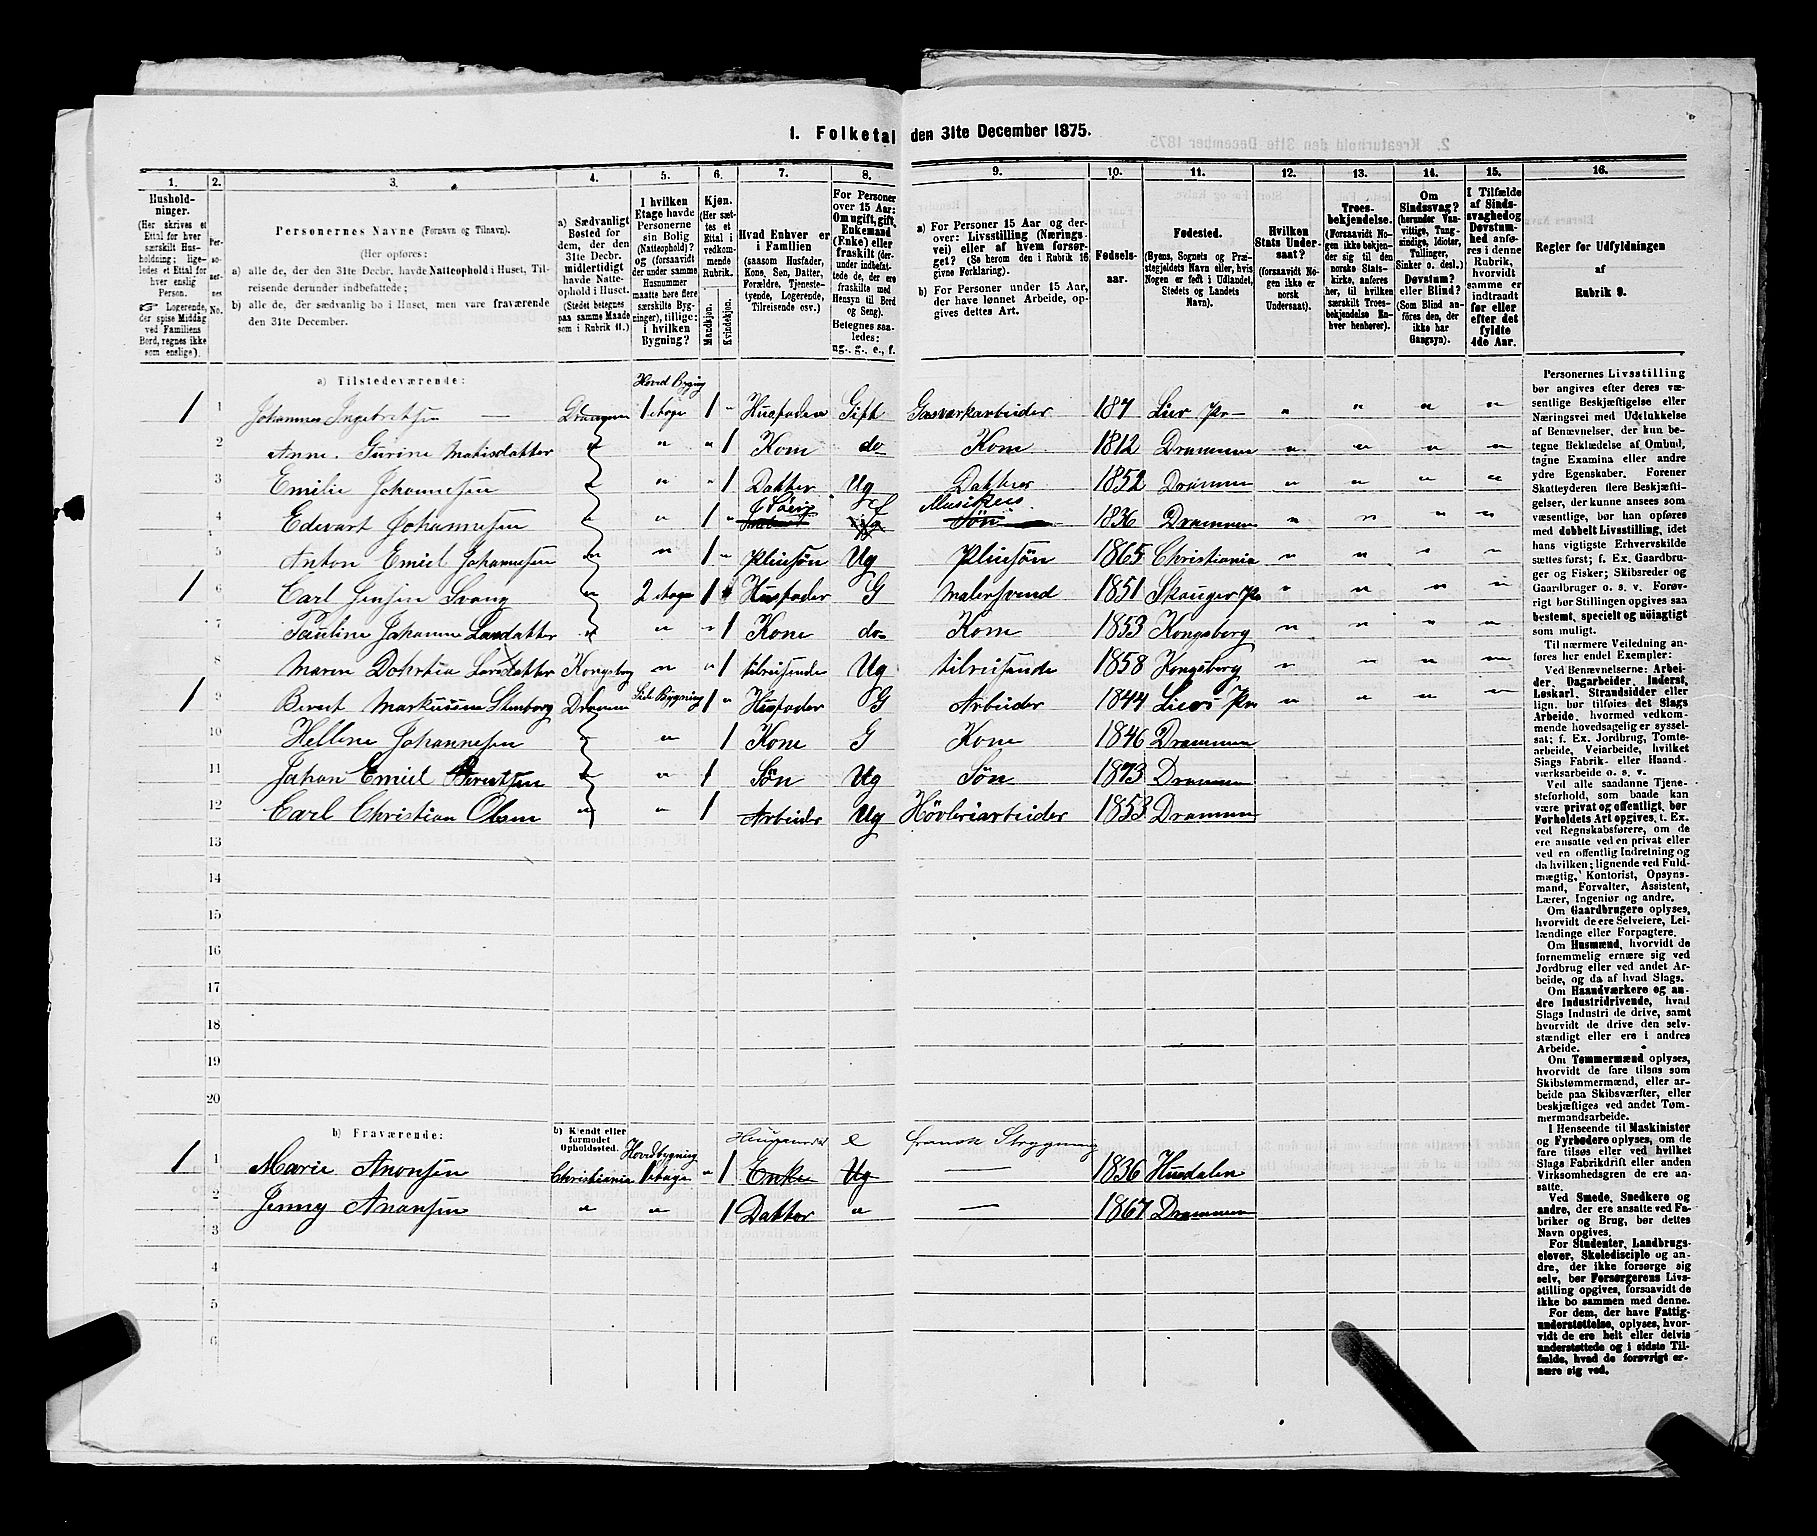 1. Folketal den 31te December 1875.
1. 2. 3. 4. 5. 6. 7. 8. 9. 10. 11. 12. 13. 14. 15. 16.
Husholdninger. (Her skrives et Ettal for hver særskilt Husholdning; ligeledes et Ettal for hver enslig Person. Logerende, der spise Middag ved Familiens Bord, regnes ikke som enslige).
Personernes No.
Personernes Navne (Fornavn og Tilnavn).
(Her opføres:
a) alle de, der den 31te Decbr. havde Natteophold i Huset, Tilreisende derunder indbefattede;
b) alle de, der sædvanlig bo i Huset, men vare fraværende den 31te December.
a) Sædvanligt Bosted for dem, der den 31te Decbr. midlertidigt havde Natteophold i Huset. (Stedet betegnes paa samme Maade som i Rubrik 11.)
I hvilken Etage havde Personerne sin Bolig (Natteophold)? og (forsaavidt der under samme Husnummer maatte høre flere særskilte Bygninger), tillige: i hvilken Bygning?
Kjøn. (Her sættes et Ettal i vedkommende Rubrik. Mandkjøn. Kvindekjøn.
Hvad Enhver er i Familien (saasom Husfader, Kone, Søn, Datter, Forældre, Tjenestetyende, Logerende, Tilreisende osv.)
For Personer over 15 Aar: Om ugift, gift, Enkemand (Enke) eller fraskilt (derunder indbefattede de, der ere fraskilte med Hensyn til Bord og Seng). Betegnes saaledes: ug., g., e., f.
a) For Personer 15 Aar og derover: Livsstilling (Næringsvei) eller af hvem forsørget? (Se herom den i Rubrik 16 givne Forklaring).
b) For Personer under 15 Aar, der have lønnet Arbeide, opgives dettes Art.
Fødselsaar.
Fødested. (Byens, Sognets og Præstegjeldets Navn eller, hvis Nogen er født i Udlandet, Stedets og Landets Navn).
Hvilken Stats Undersaat? (forsaavidt Nogen ikke er norsk Undersaat).
Troesbekjendelse. (Forsaavidt Nogen ikke bekjender sig til den norske Statskirke, anføres her, til hvilken særskilt Troesbekjendelse Enhver henhører).
Om Sindssvag? (herunder Vanvittige, Tungsindige, Idioter, Tullinger, Sinker o. desl.) Døvstum? eller Blind? (Som Blind anføres den, der ikke har Gangsyn).
I Tilfælde af Sindssvaghed og Døvstumhed anføres i denne Rubrik, hvorvidt samme er indtraadt før eller efter det fyldte 4de Aar.
Regler for Udfyldningen af Rubrik 9.
a) Tilstedeværende:
Hoved Bygnig
1 1 Johannes Ingebretsen — Drammen 1 etage 1 " Husfader Gift Gasværkarbeider 187 Lier Pr — " " " "
2 Anne. Gurine Matisdatter " " " 1 Kone do Kone 1812 Drammen " " " "
3 Emilie Johannesen " " " 1 Datter Ug Datter 1852 Drammen " " " "
4 Edevart Johannesen " " 1 " Musikus Søn 1836 Drammen " " " "
5 Anton Emiel Johannesen " " 1 " Pleiesøn Ug Pleiesøn 1865 Christiania " " " "
1 6 Carl Jensen Svang " 2 etage 1 " Husfader G Malersvend 1851 Skouger Pr " " " "
7 Pauline Johanne Larsdatter " " " 1 Kone do Kone 1853 Kongsberg " " " "
8 Maren Dorthea Larsdatter Kongsberg " " 1 tilreisende Ug tilreisende 1858 Kongsberg " " " "
1 9 Berent Markussen Stenborg Drammen Side Bygning 1 " Husfader G Arbeider 1844 Liers Pr " " " "
10 Helene Johannesen " " 1 Kone G Kone 1846 Drammen
11 Johan Emiel Berentsen " " 1 Søn Ug Søn 1873 Drammen
12 Carl Christian Olsen " " 1 Arbeider Ug Høvleriarbeider 1853 Drammen
13
14
15
16
17
18
19
20
b) Fraværende:
b) Kjendt eller formodet Opholdssted.
Hovedbygning e fransk Strygning
1 1 Marie Aronsen Christiania 1 etage " 1 Enke Ug — 1836 Hurdalen
2 Jenny Aronsen " " 1 Datter " — 1867 Drammen
3
4
5
6
Personernes Livsstilling
bør angives efter deres væ-
sentlige Beskjæftigelse eller
Næringsvei med Udelukkelse
af Benævnelser, der kun be-
tegne Beklædelse af Ombud,
tagne Examina eller andre
ydre Egenskaber. Forener
Skatteyderen flere Beskjæfti-
gelser, der kunne ansees som
væsentlige, bør han opføres
med dobbelt Livsstilling, idet
hans vigtigste Erhvervskilde
sættes først; f. Ex. Gaardbru-
ger og Fisker; Skibsreder og
Gaardbruger o. s. v. Forøv-
rigt bør Stillingen opgives saa
bestemt, specielt og nöiagtigt
som muligt.
Til nærmere Veiledning an-
føres her endel Exempler:
Ved Benævnelserne: Arbei-
der, Dagarbeider, Inderst,
Løskarl, Strandsidder eller
lign. bør tilføies det Slags
Arbeide, hvormed vedkom-
mende hovedsagelig er syssel-
sat; f. Ex. Jordbrug, Tomte-
arbeide, Veiarbeide, hvilket
Slags Fabrik- eller Haand-
værksarbeide o. s. v.
Ved alle saadanne Tjene-
steforhold, som baade kan
være privat og offentligt, bør
Forholdets Art opgives, f. Ex.
ved Regnskabsførere, om de
ere ansatte ved en privat eller
ved en offentlig Indretning og
da hvilken; lignende ved Fuld-
mægtig, Kontorist, Opsyns-
mand, Forvalter, Assistent,
Lærer, Ingeniør og andre.
Om Gaardbrugere oplyses,
hvorvidt de ere Selveiere, Lei-
lændinge eller Forpagtere.
Om Husmænd, hvorvidt de
fornemmelig ernære sig ved
Jordbrug eller ved andet Ar-
beide, og da af hvad Slags.
Om Haandværkere og an-
dre Industridrivende, hvad
Slags Industri de drive, samt
hvorvidt de drive den selv-
stændigt eller ere i andres
Arbeide.
Om Tømmermænd oplyses,
hvorvidt de fare tilsøs som
Skibstømmermænd, eller ar-
beide paa Skibsværfter, eller
beskjæftiges ved andet Tøm-
mermandsarbeide.
I Henseende til Maskinister
og Fyrbødere oplyses, om de
fare tilsøs eller ved hvilket
Slags Fabrikdrift eller anden
Virksomhedsgren de ere an-
satte.
Ved Smede, Snedkere og
andre, der ere ansatte ved Fa-
briker og Brug, bør dettes
Navn opgives.
For Studenter, Landbrugs-
elever, Skoledisciple og an-
dre, der ikke forsørge sig
selv, bør Forsørgerens Livs-
stilling opgives, forsaavidt de
ikke bo sammen med denne.
For dem, der have Fattig-
understøttelse, oplyses, hvor-
vidt de ere helt eller delvis
understøttede og i sidste Til-
fælde, hvad de forøvrigt er-
nære sig ved.